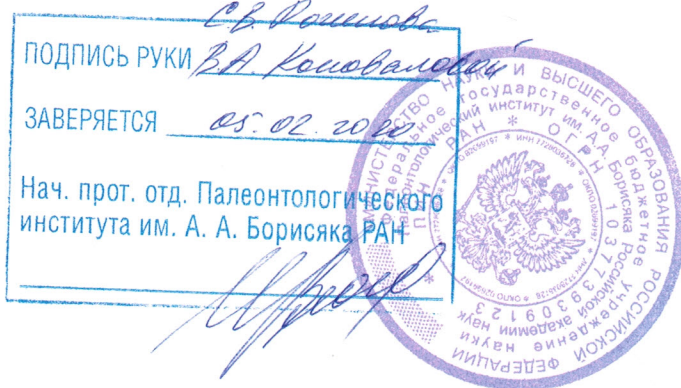 С.В. Рожнова
ПОДПИСЬ РУКИ В.А. Коноваловой
ЗАВЕРЯЕТСЯ 05.02.2020
Нач. прот. отд. Палеонтологического
института им. А. А. Борисяка РАН
МИНИСТЕРСТВО НАУКИ И ВЫСШЕГО ОБРАЗОВАНИЯ РОССИЙСКОЙ ФЕДЕРАЦИИ
Федеральное государственное бюджетное учреждение науки
Палеонтологический институт им. А.А. Борисяка Российской академии наук
* ПИН РАН * ОГРН 1037739309123